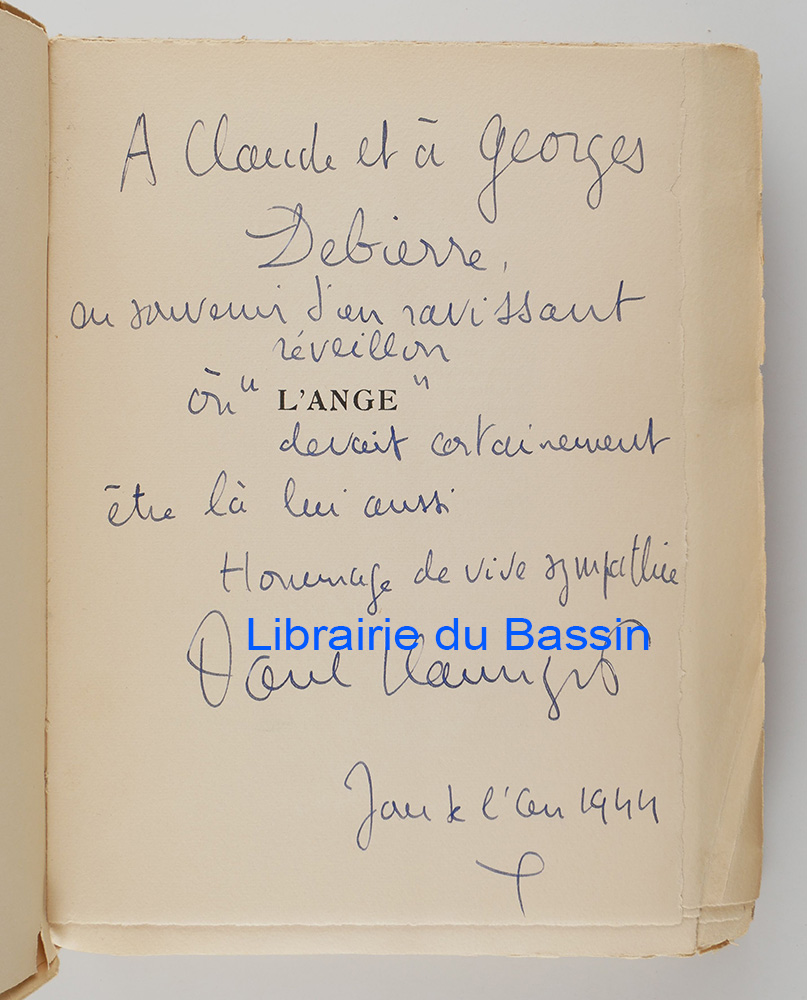 A Claude et à Georges
Debierre,
au souvenir d'un ravissant
réveillon
où "L'ANGE"
devait certainement
être là lui aussi
Hommage de vive sympathie
Librairie du Bassin
Paul
Jour de l'An 1944